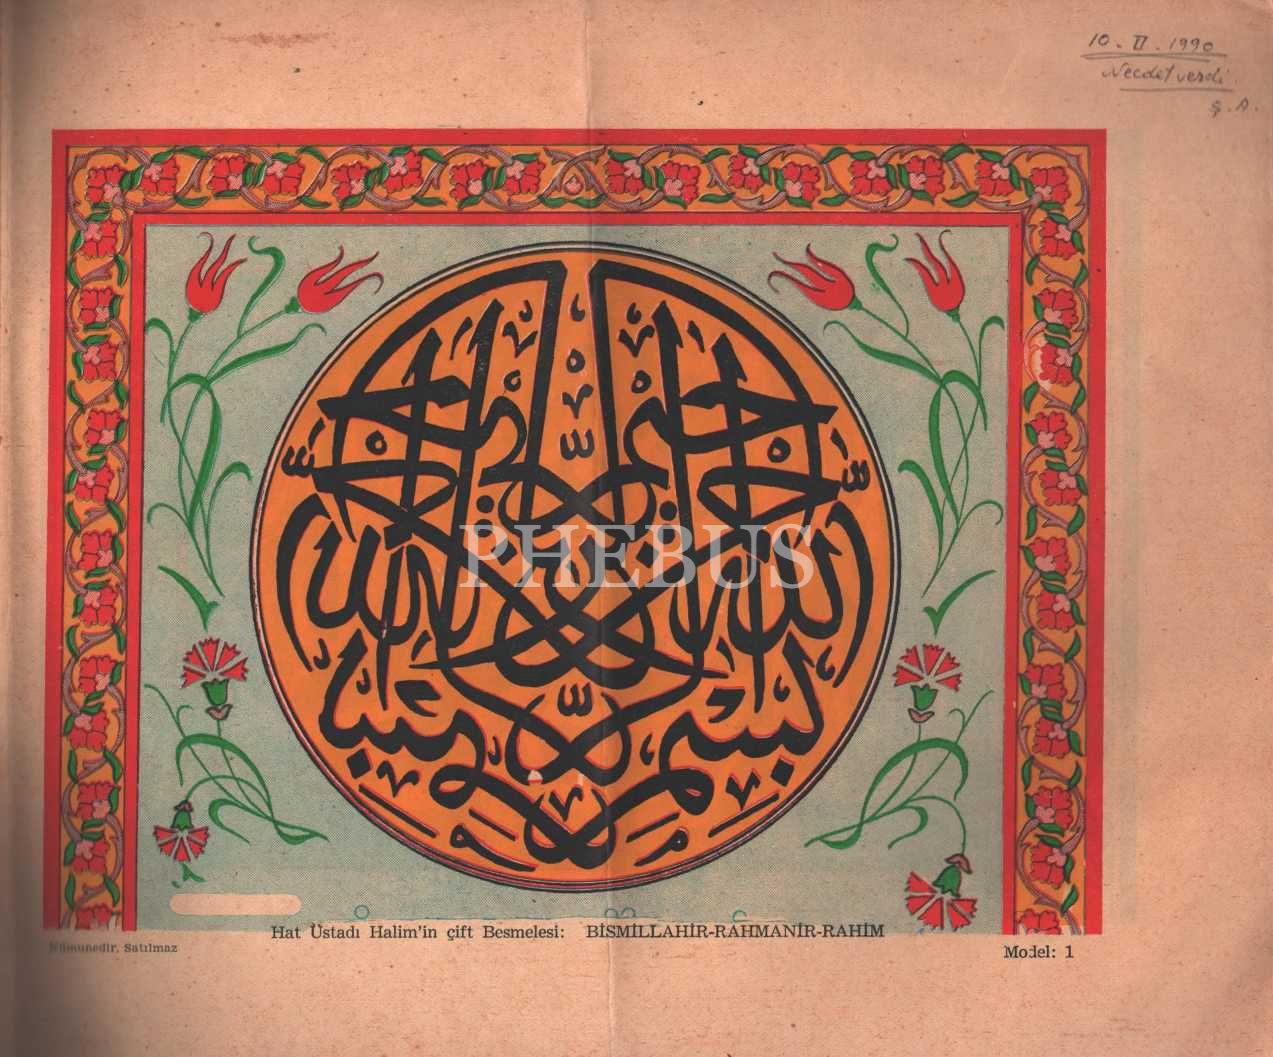 10. II. 1990
Necdet verdi.
Ş. A.
بسم الله الرحمن الرحيم
PHEBUS
Hat Üstadı Halim'in çift Besmelesi: BİSMİLLAHİR-RAHMANİR-RAHİM
Nümunedir. Satılmaz
Model: 1